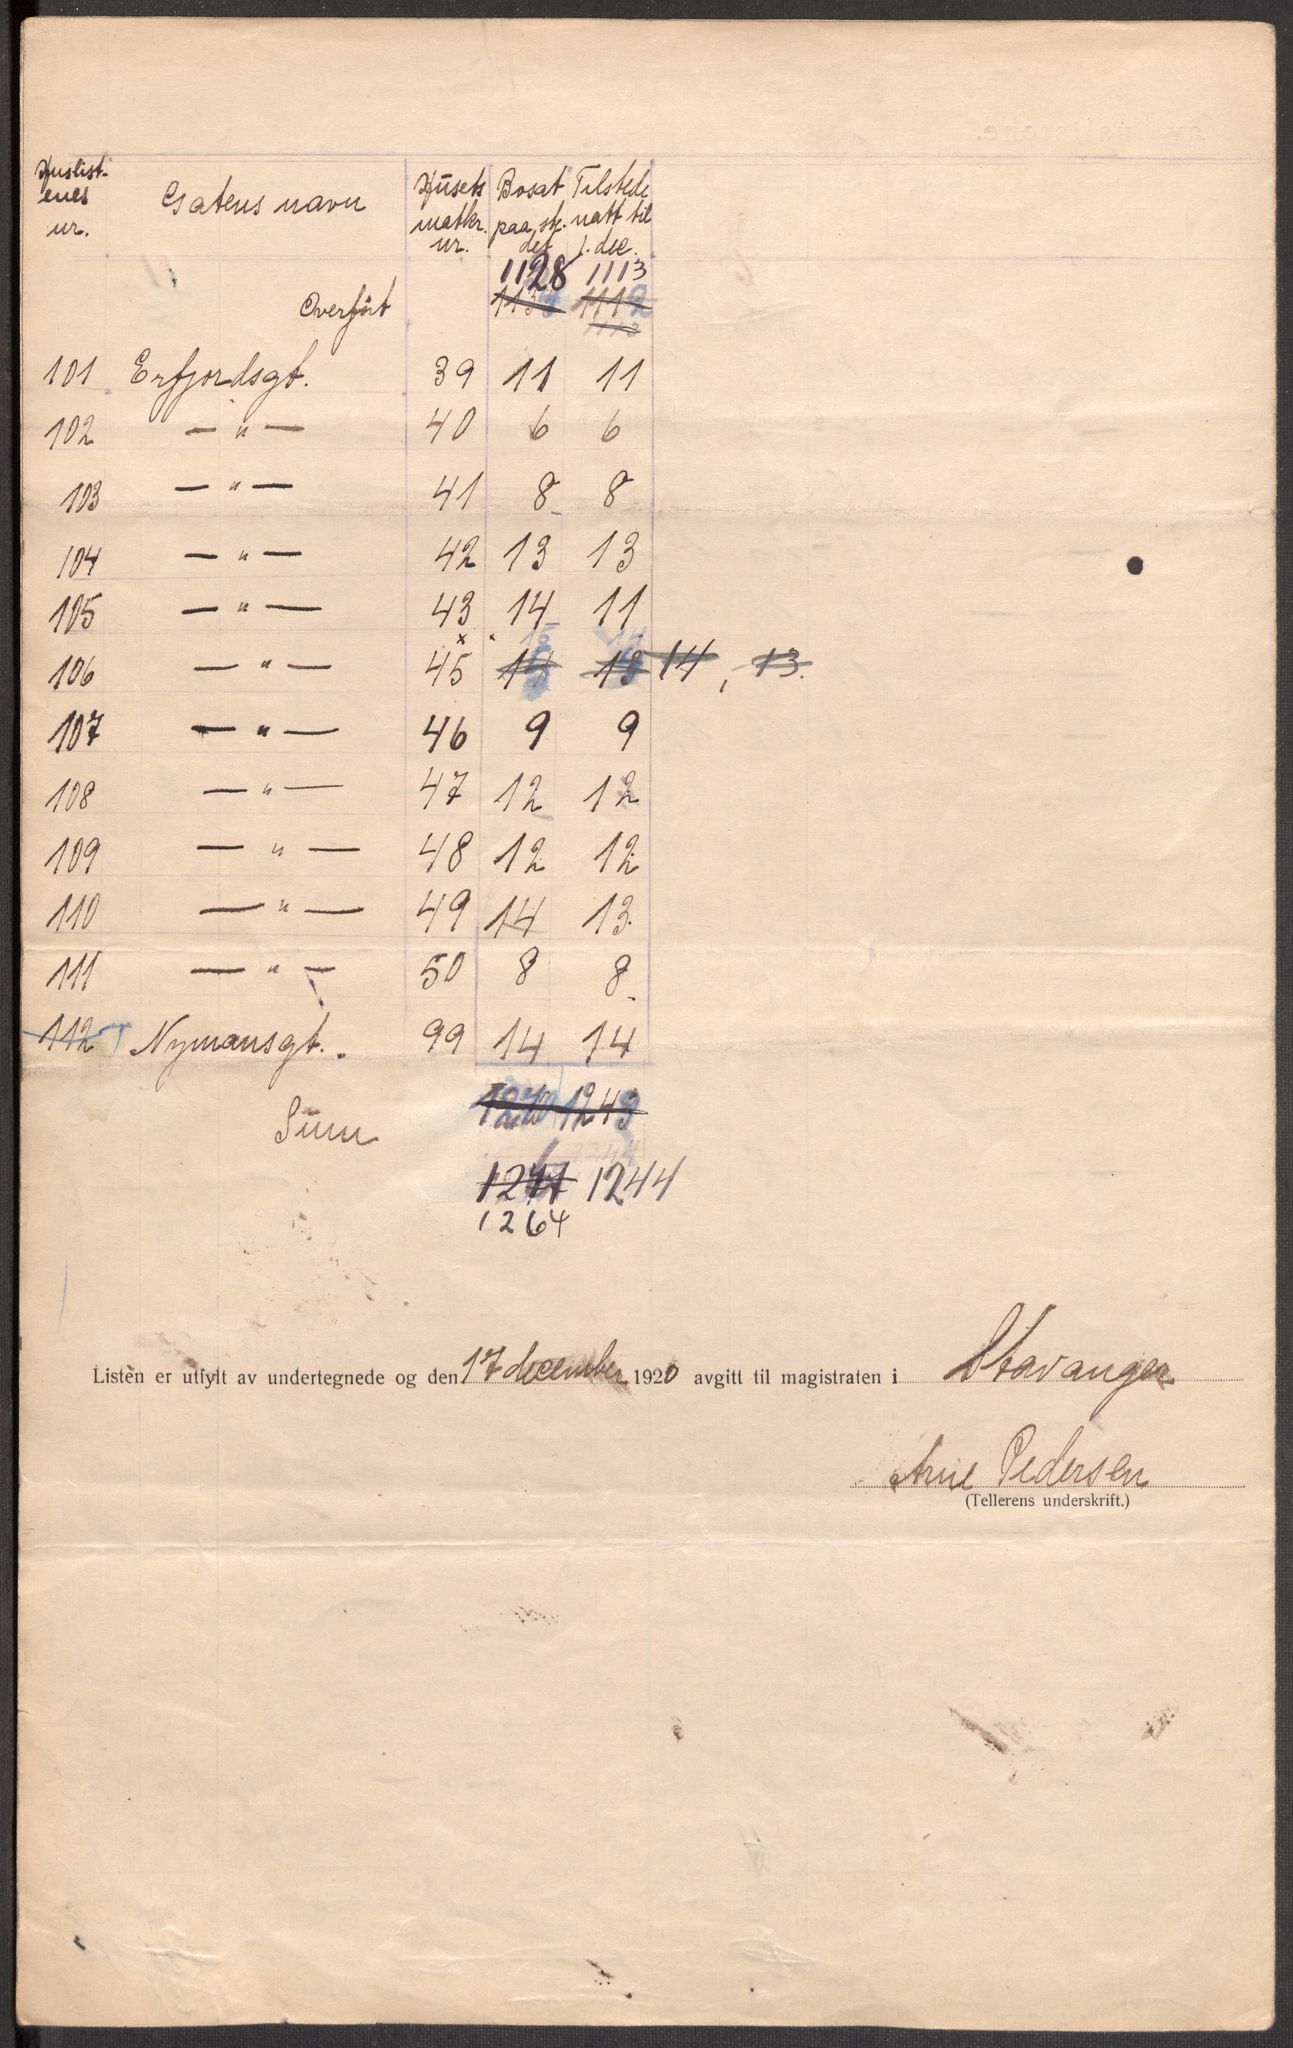 Huslist- Gatens navn Husets Bosat Tilstede
enes matkr. paa ste- natt til
nr. nr. det 1. dec.
1128 1113
Overført 1133 1112
1113
101 Erfjordsgt. 39 11 11
102 — " — 40 6 6
103 — " — 41 8 8
104 — " — 42 13 13
105 — " — 43 14 11
15 14
106 — " — 45 14 13 14, 13.
107 — " — 46 9 9
108 — " — 47 12 12
109 — " — 48 12 12
110 — " — 49 14 13
111 — " — 50 8 8
112 Nymansgt. 99 14 14
Sum 1270 1243
1271 1244
1264
Listen er utfylt av undertegnede og den 17 december 1920 avgitt til magistraten i Stavanger
Arne Pedersen
(Tellerens underskrift.)